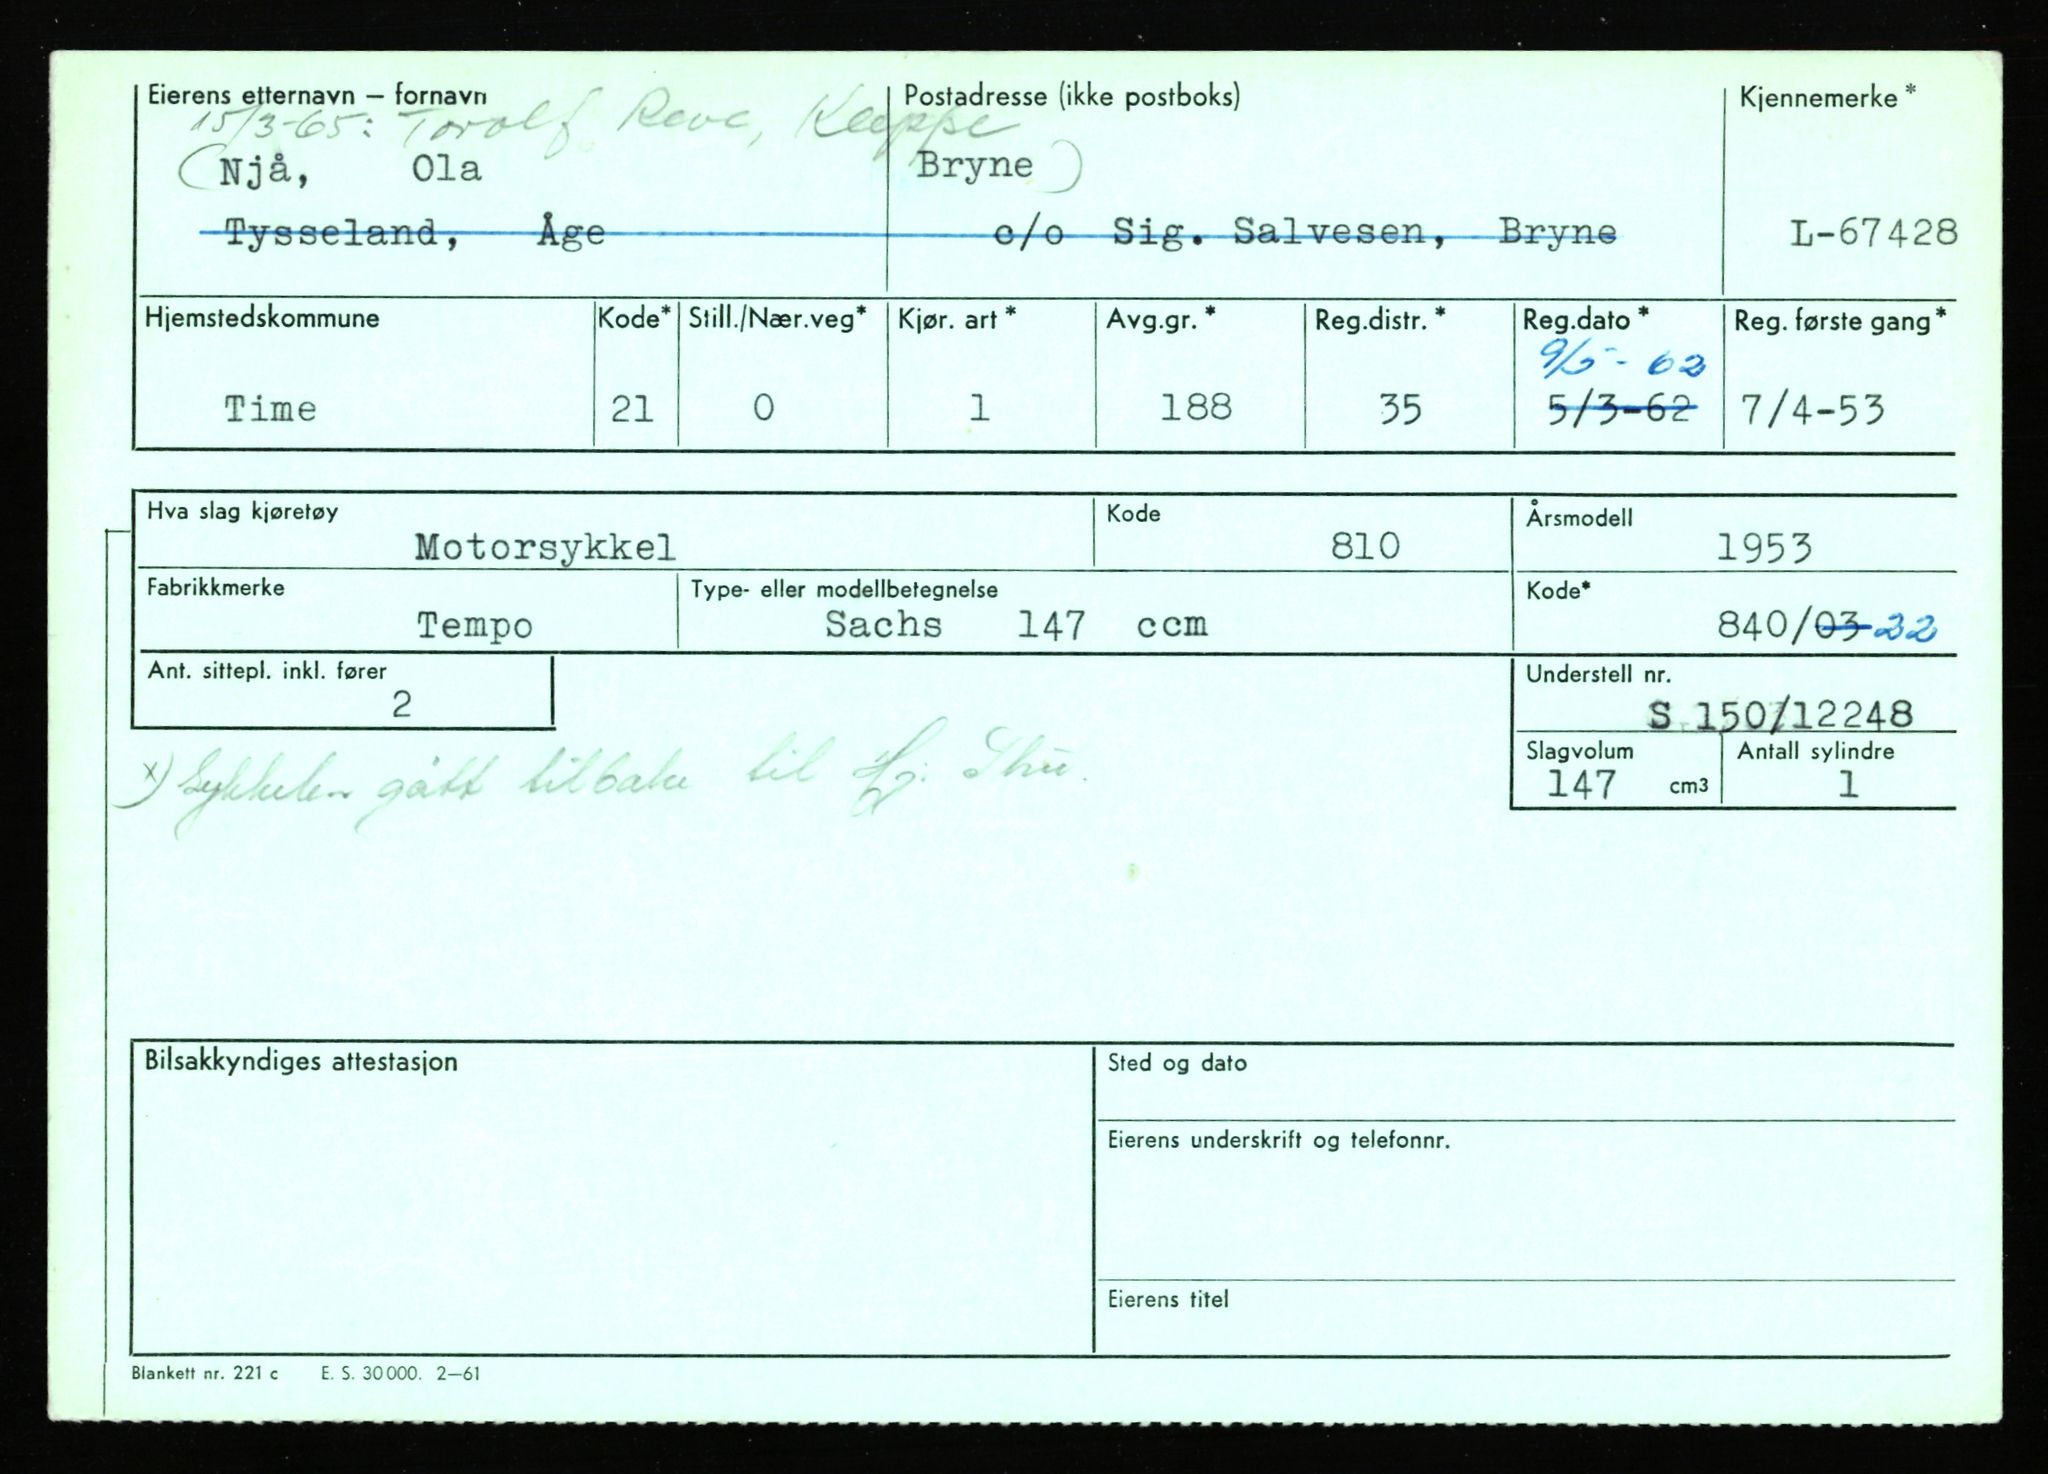 Eierens etternavn — fornavn Postadresse (ikke postboks) Kjennemerke *
15/3-65: Torolf Reve, Kleppe
(Njå, Ola Bryne)
Tysseland, Åge c/o Sig. Salvesen, Bryne L-67428
Hjemstedskommune Kode* Still./Nær.veg* Kjør. art * Avg.gr. * Reg.distr. * Reg.dato * Reg. første gang *
9/5-62
Time 21 0 1 188 35 5/3-62 7/4-53
Hva slag kjøretøy Kode Årsmodell
Motorsykkel 810 1953
Fabrikkmerke Type- eller modellbetegnelse Kode*
Tempo Sachs 147 ccm 840/03 22
Ant. sittepl. inkl. fører Understell nr.
2 S 150/12248
x) Sykkelen gått tilbake til
Slagvolum Antall sylindre
147 cm3 1
Bilsakkyndiges attestasjon Sted og dato
Eierens underskrift og telefonnr.
Eierens titel
Blankett nr. 221 c E. S. 30 000. 2—61